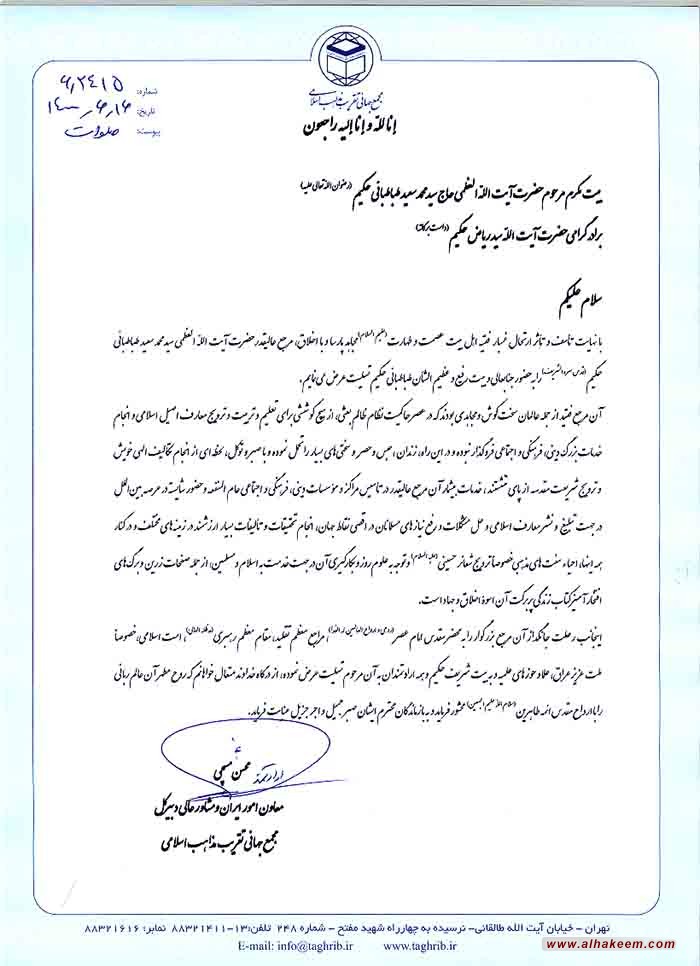 مجمع جهانی تقریب مذاهب اسلامی
انا لله و انا الیه راجعون
شماره: ۶٫۲۴۱۵
تاریخ: ۱۴۰۰٫۶٫۱۶
پیوست: صلوات
بیت مکرم مرحوم حضرت آیت الله العظمی حاج سید محمد سعید طباطبائی حکیم (رضوان الله تعالی علیه)
برادر گرامی حضرت آیت الله سید ریاض حکیم (دامت برکاته)
سلام علیکم
با نهایت تأسف و تأثر ارتحال غمبار فقیه اهل بیت عصمت و طهارت (علیهم السلام) مجاهد پارسا و با اخلاق، مرجع عالیقدر حضرت آیت الله العظمی سید محمد سعید طباطبائی
حکیم (قدس سره الشریف) را به حضور جنابعالی و بیت رفیع و عظیم الشان طباطبائی حکیم تسلیت عرض می نمایم.
آن مرجع فقید از جمله عالمان سخت کوش و مجاهدی بودند که در عصر حاکمیت نظام ظالم بعثی، از هیچ کوششی برای تعلیم و تربیت و ترویج معارف اصیل اسلامی و انجام
خدمات بزرگ دینی، فرهنگی و اجتماعی فروگذار ننموده و در این راه، زندان، حبس و حصر و سختی های بسیار را تحمل نموده و با صبر و توکل، لحظه ای از انجام تکالیف الهی خویش
و ترویج شریعت مقدسه از پای ننشستند، خدمات بیشمار آن مرجع عالیقدر در تاسیس مراکز و مؤسسات دینی، فرهنگی و اجتماعی عام المنفعه و حضور شایسته در عرصه بین الملل
در جهت تبلیغ و نشر معارف اسلامی و حل مشکلات و رفع نیازهای مسلمانان در اقصی نقاط جهان، انجام تحقیقات و تالیفات بسیار ارزشمند در زمینه های مختلف و در کنار
همه اینها، احیاء سنت های مذهبی خصوصا ترویج شعائر حسینی (علیه السلام) و توجه به علوم روز و بکارگیری آن در جهت خدمت به اسلام و مسلمین، از جمله صفحات زرین و برگ های
افتخار آمیز کتاب زندگی پر برکت آن اسوه اخلاق و جهاد است.
اینجانب رحلت جانگداز آن مرجع بزرگوار را به محضر مقدس امام عصر (روحی و ارواح العالمین له الفدا)، مراجع معظم تقلید، مقام معظم رهبری (مدظله العالی)، امت اسلامی، خصوصاً
ملت عزیز عراق، علماء حوزه های علمیه و به بیت شریف حکیم و همه ارادتمندان به آن مرحوم تسلیت عرض نموده، از درگاه خداوند متعال خواهانم که روح مطهر آن عالم ربانی
را با ارواح مقدس ائمه طاهرین (سلام الله علیهم اجمعین) محشور فرماید و به بازماندگان محترم ایشان صبر جمیل و اجر جزیل عنایت فرماید.
ارادتمند
محسن مسچی
معاون امور ایران و مشاور عالی دبیرکل
مجمع جهانی تقریب مذاهب اسلامی
تهران - خیابان آیت الله طالقانی- نرسیده به چهارراه شهید مفتح - شماره ۲۴۸ تلفن: ۱۳-۸۸۳۲۱۴۱۱ نمابر: ۸۸۳۲۱۶۱۶
E-mail: info@taghrib.ir www.taghrib.ir
www.alhakeem.com